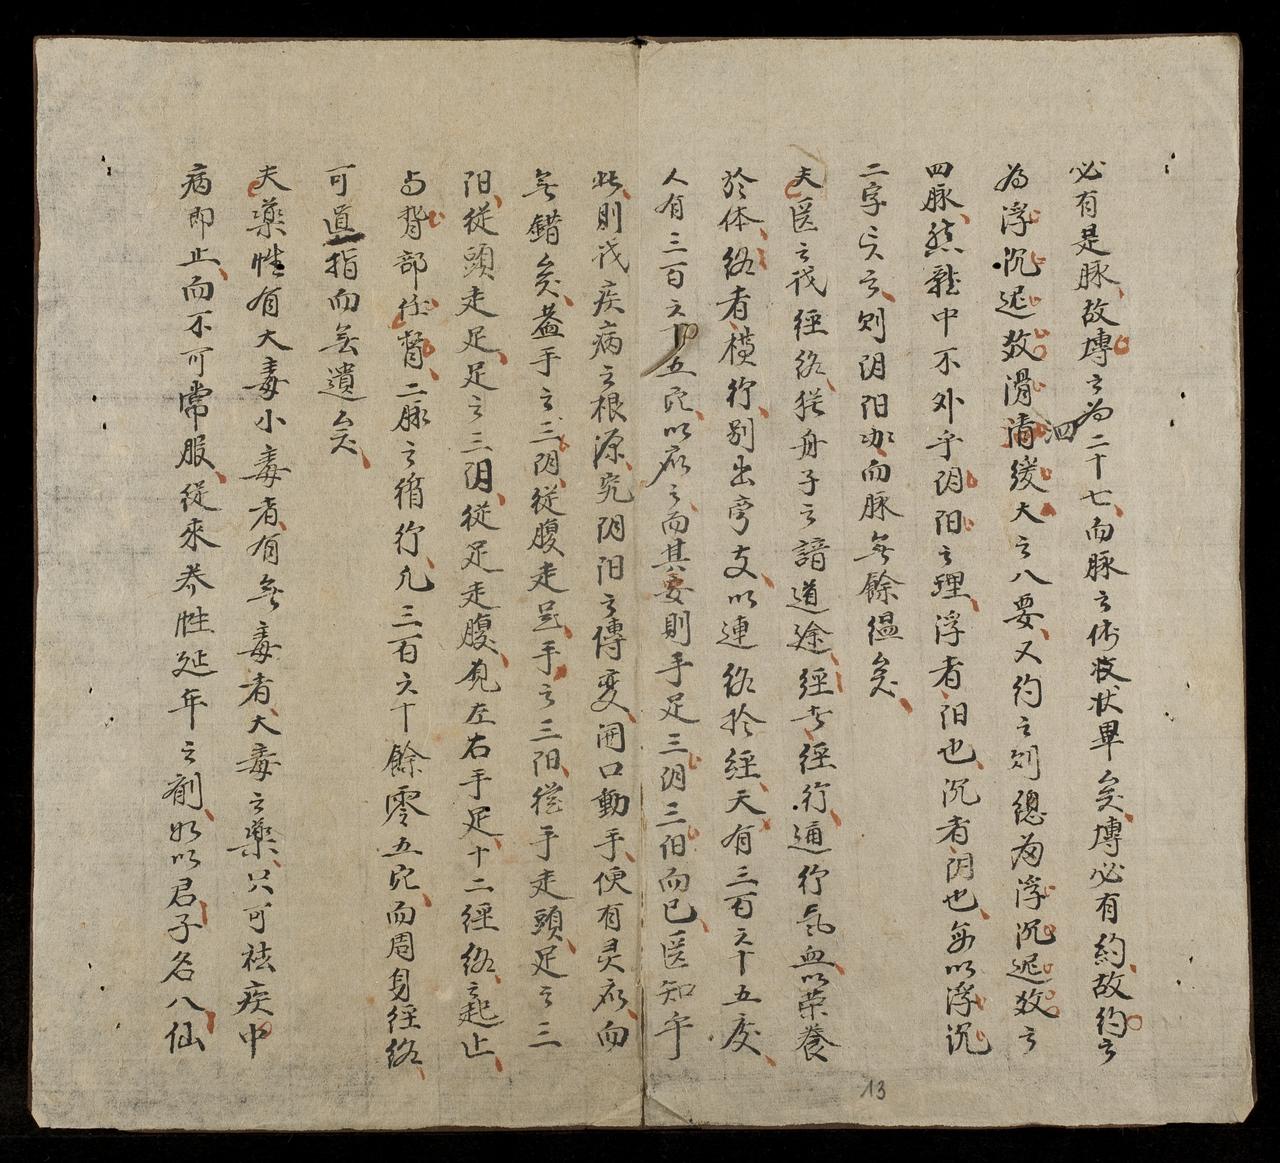 必有是脉故博之为二十七而脉之体狀畢矣博必有約故約之
为浮沉迟数滑濇缓大之八要又約之则總为浮沉迟数之
四脉然雖中不外乎阴阳之理浮者阳也沉者阴也每以浮沉
二字言之则阴阳加而脉無餘緼矣
夫医之於經络猶舟子之諳道途經者經行通行氣血以荣養
於体络者横行别出旁支以連络於經天有三百六十五度
人有三百六十五穴以应之而其要則手足三阴三阳而已医知乎
此則識疾病之根源究阴阳之傳变闭口動手便有灵应而
無錯矣蓋手之三阴從腹走至手之三阳從手走頭足之三
阳從頭走足足之三阴從足走腹凡左右手足十二經络之起止
与背部任督二脉之循行凡三百六十餘零五穴而周身經络
可道指而無遺矣
夫藥性有大毒小毒者有無毒者大毒之藥只可祛疾中
病即止而不可常服從來养性延年之剤如以君子名八仙
13